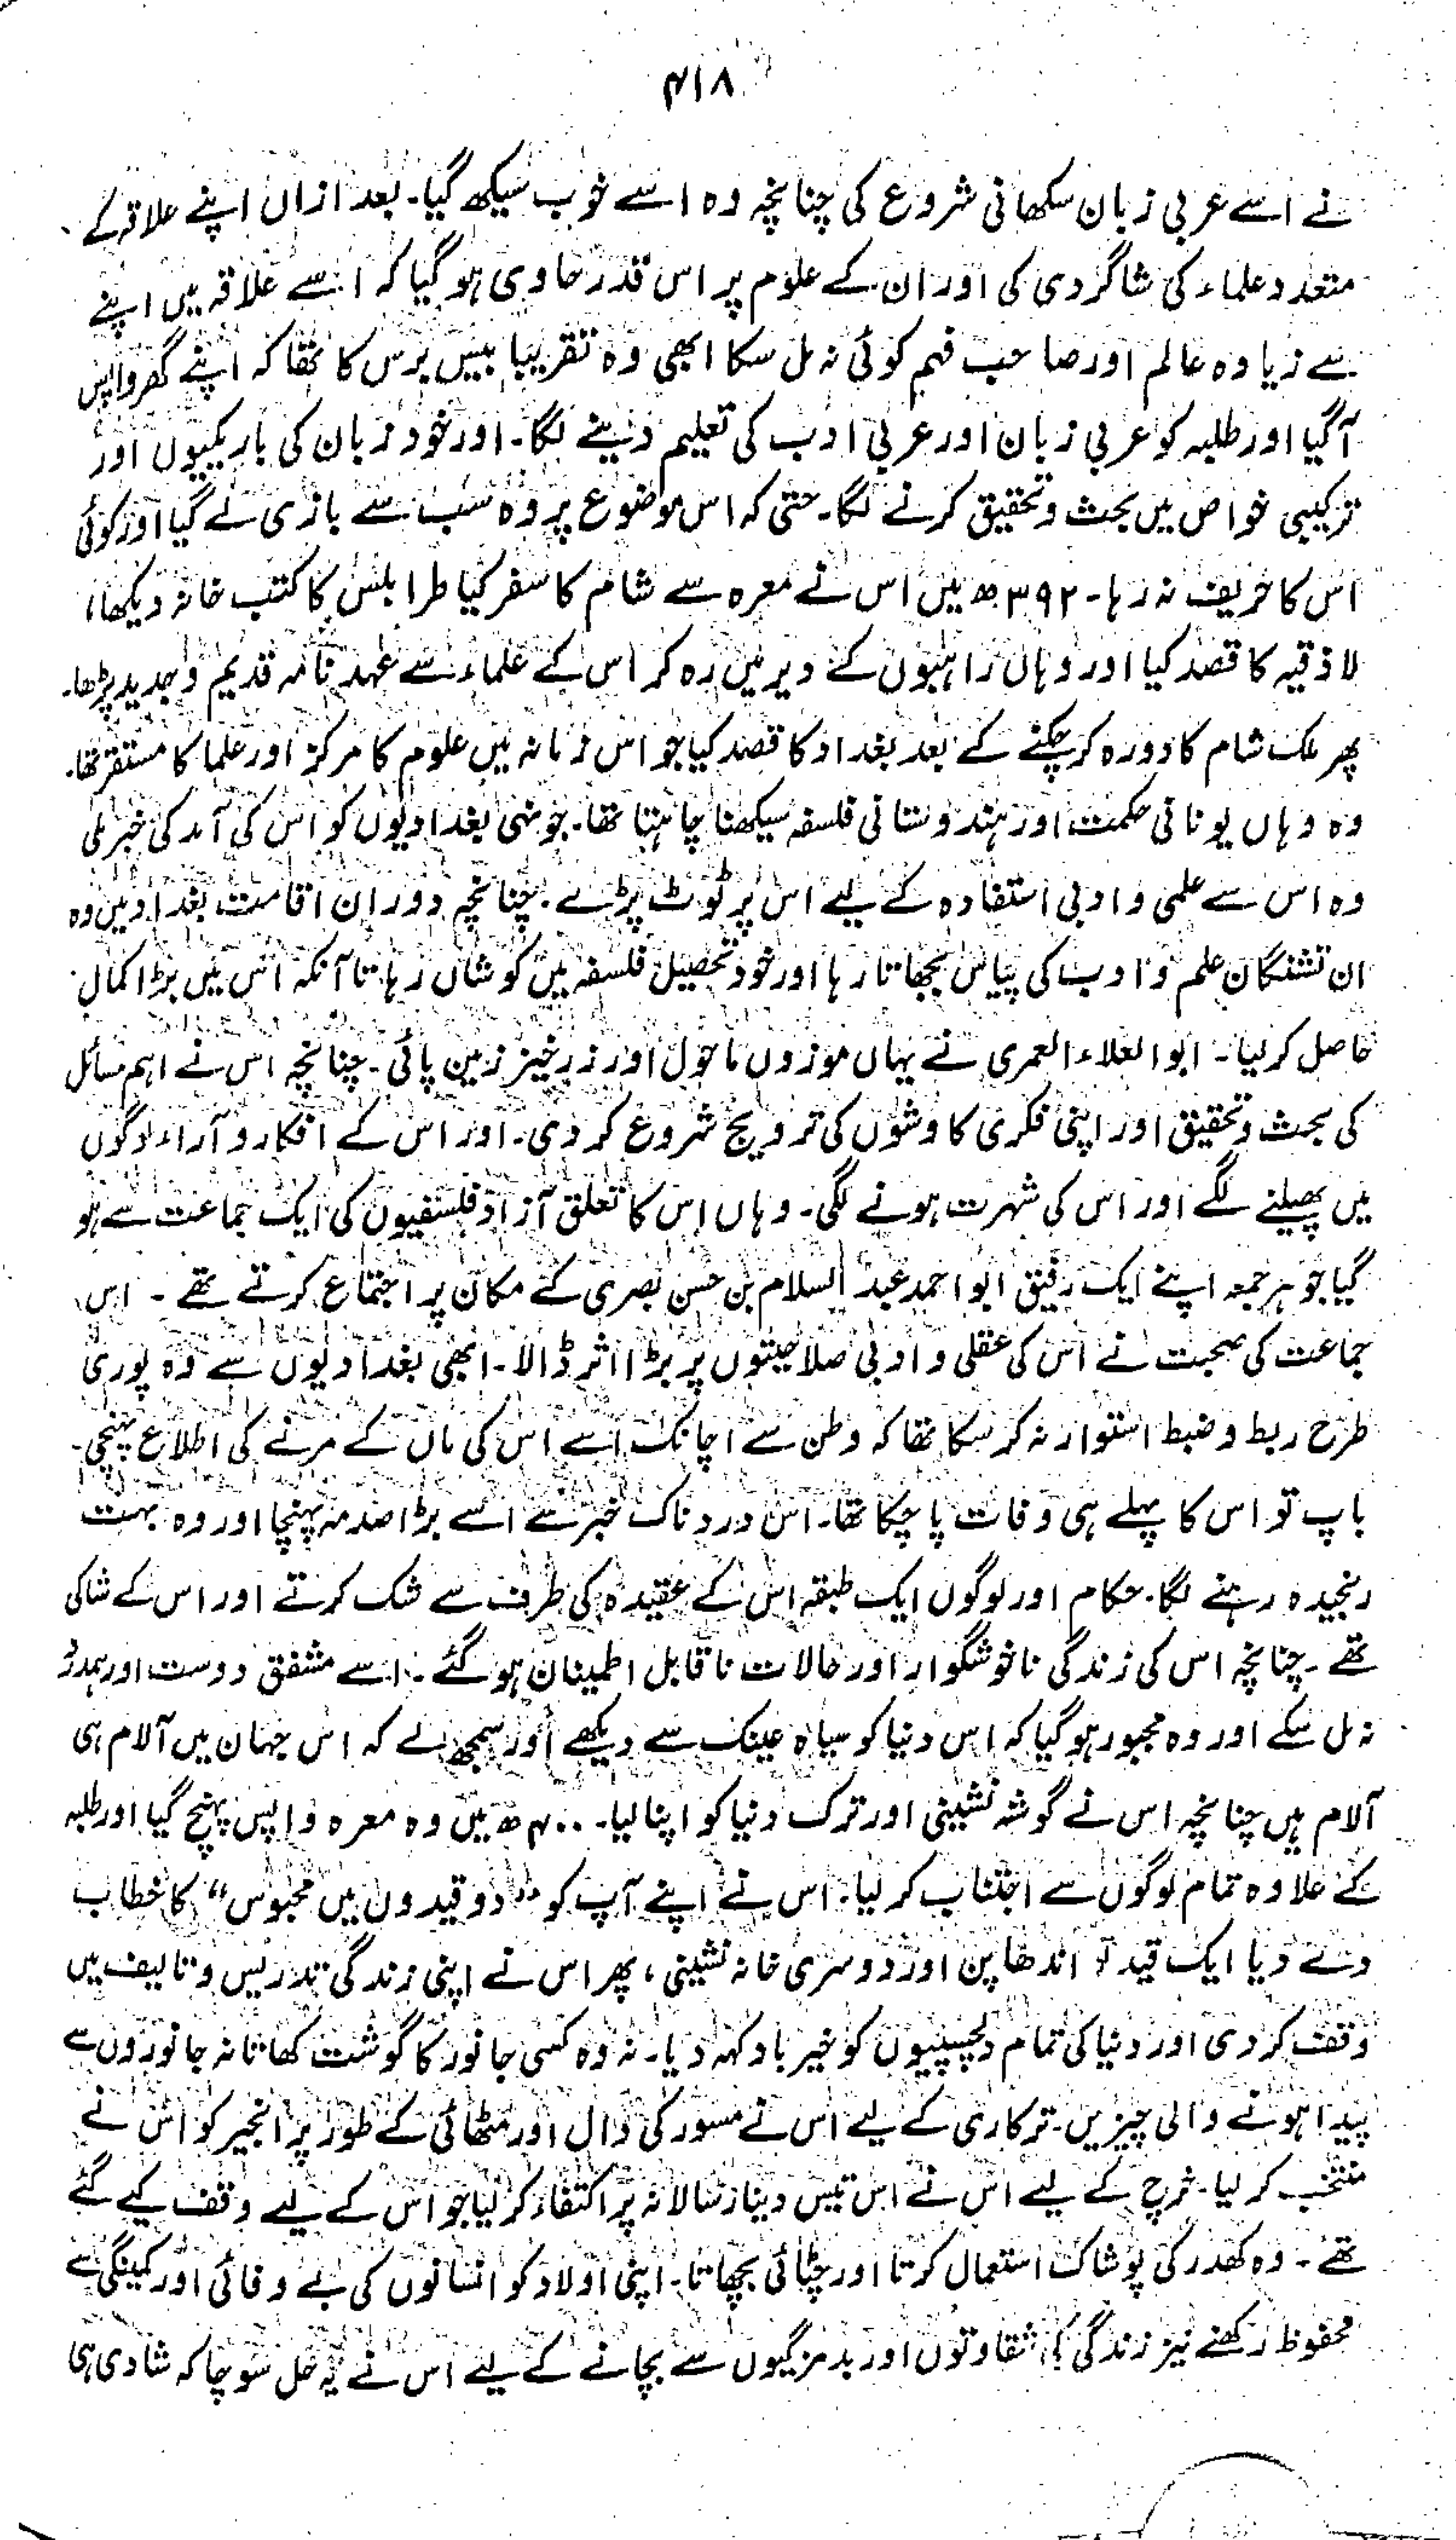 ۴۱۸
نے اسے عربی زبان سکھانی شروع کی چنانچہ وہ اسے خوب سیکھ گیا۔ بعد ازاں اپنے علاقہ کے
متعدد علماء کی شاگردی کی اور ان کے علوم پر اس قدر حاوی ہو گیا کہ اسے علاقہ میں اپنے
سے زیادہ عالم اور صاحب فہم کوئی نہ مل سکا ابھی وہ تقریبا بیس برس کا تھا کہ اپنے گھر واپس
آ گیا اور طلبہ کو عربی زبان اور عربی ادب کی تعلیم دینے لگا۔ اور خود زبان کی باریکیوں اور
ترکیبی خواص میں بحث و تحقیق کرنے لگا۔ حتی کہ اس موضوع پر وہ سب سے بازی لے گیا اور کوئی
اس کا حریف نہ رہا۔ ۳۹۲ھ میں اس نے معرہ سے شام کا سفر کیا طرابلس کا کتب خانہ دیکھا،
لاذقیہ کا قصد کیا اور وہاں راہبوں کے دیر میں رہ کر اس کے علماء سے عہد نامہ قدیم و جدید پڑھا۔
پھر ملک شام کا دورہ کر چکنے کے بعد بغداد کا قصد کیا جو اس زمانہ میں علوم کا مرکز اور علما کا مستقر تھا۔
وہ وہاں یونانی حکمت اور ہندوستانی فلسفہ سیکھنا چاہتا تھا۔ جونہی بغدادیوں کو اس کی آمد کی خبر ملی
وہ اس سے علمی و ادبی استفادہ کے لیے اس پر ٹوٹ پڑے۔ چنانچہ دوران اقامت بغداد میں وہ
ان تشنگان علم و ادب کی پیاس بجھاتا رہا اور خود تحصیل فلسفہ میں کوشاں رہا تاآنکہ اس میں بڑا کمال
حاصل کر لیا۔ ابوالعلاء العمری نے یہاں موزوں ماحول اور زرخیز زمین پائی۔ چنانچہ اس نے اہم مسائل
کی بحث و تحقیق اور اپنی فکری کاوشوں کی ترویج شروع کر دی۔ اور اس کے افکار و آراء لوگوں
میں پھیلنے لگے اور اس کی شہرت ہونے لگی۔ وہاں اس کا تعلق آزاد فلسفیوں کی ایک جماعت سے ہو
گیا جو ہر جمعہ اپنے ایک رفیق ابو احمد عبد السلام بن حسن بصری کے مکان پر اجتماع کرتے تھے ۔ اس
جماعت کی صحبت نے اس کی عقلی و ادبی صلاحیتوں پر بڑا اثر ڈالا۔ ابھی بغدادیوں سے وہ پوری
طرح ربط و ضبط استوار نہ کر سکا تھا کہ وطن سے اچانک اسے اس کی ماں کے مرنے کی اطلاع پہنچی۔
باپ تو اس کا پہلے ہی وفات پا چکا تھا۔ اس دردناک خبر سے اسے بڑا صدمہ پہنچا اور وہ بہت
رنجیدہ رہنے لگا۔ حکام اور لوگوں ایک طبقہ اس کے عقیدہ کی طرف سے شک کرتے اور اس کے شاکی
تھے ۔ چنانچہ اس کی زندگی ناخوشگوار اور حالات ناقابل اطمینان ہو گئے ۔ اسے مشفق دوست اور ہمدرد
نہ مل سکے اور وہ مجبور ہو گیا کہ اس دنیا کو سیاہ عینک سے دیکھے اور سمجھ لے کہ اس جہان میں آلام ہی
آلام ہیں چنانچہ اس نے گوشہ نشینی اور ترک دنیا کو اپنا لیا۔ ۴۰۰ھ میں وہ معرہ واپس پہنچ گیا اور طلبہ
کے علاوہ تمام لوگوں سے اجتناب کر لیا۔ اس نے اپنے آپ کو "دو قیدوں میں محبوس" کا خطاب
دے دیا ایک قید تو اندھا پن اور دوسری خانہ نشینی، پھر اس نے اپنی زندگی تدریس و تالیف میں
وقف کر دی اور دنیا کی تمام دلچسپیوں کو خیر باد کہہ دیا۔ نہ وہ کسی جانور کا گوشت کھاتا نہ جانوروں سے
پیدا ہونے والی چیزیں۔ ترکاری کے لیے اس نے مسور کی دال اور مٹھائی کے طور پر انجیر کو اس نے
منتخب کر لیا۔ خرچ کے لیے اس نے اس تیس دینار سالانہ پر اکتفاء کر لیا جو اس کے لیے وقف کیے گئے
تھے ۔ وہ کھدر کی پوشاک استعمال کرتا اور چٹائی بچھاتا۔ اپنی اولاد کو انسانوں کی بے وفائی اور کمینگی سے
محفوظ رکھنے نیز زندگی کی شقاوتوں اور بدمزگیوں سے بچانے کے لیے اس نے یہ حل سوچا کہ شادی ہی